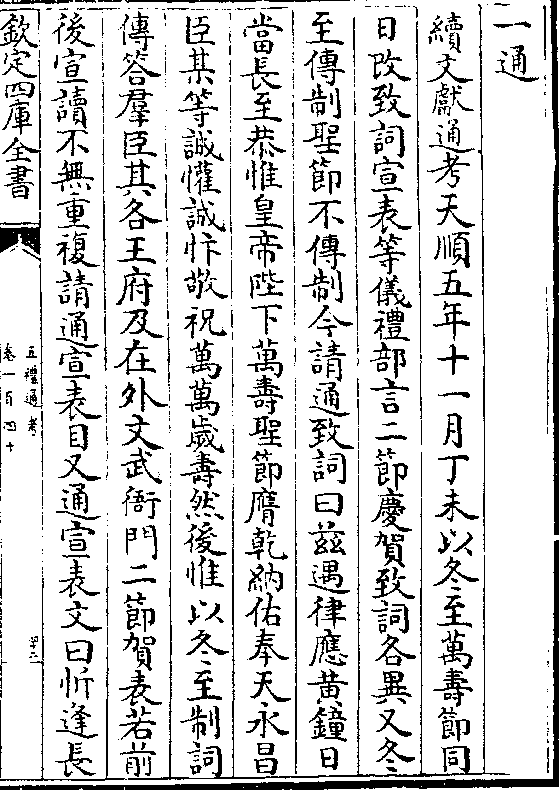 一通
續文獻通考天順五年十一月丁未以冬至萬壽節同
日改致詞宣表等儀禮部言二節慶賀致詞各異又冬
至傳制聖節不傳制今請通致詞曰兹遇律應黄鐘日
當長至恭惟皇帝陛下萬壽聖節膺乾納佑奉天永昌
臣某等誠懽誠忭敬祝萬萬歲壽然後惟以冬至制詞
傳答羣臣其各王府及在外文武衙門二節賀表若前
後宣讀不無重複請通宣表目又通宣表文曰忻逢長
欽定四庫全書
五禮通考
卷一百四十